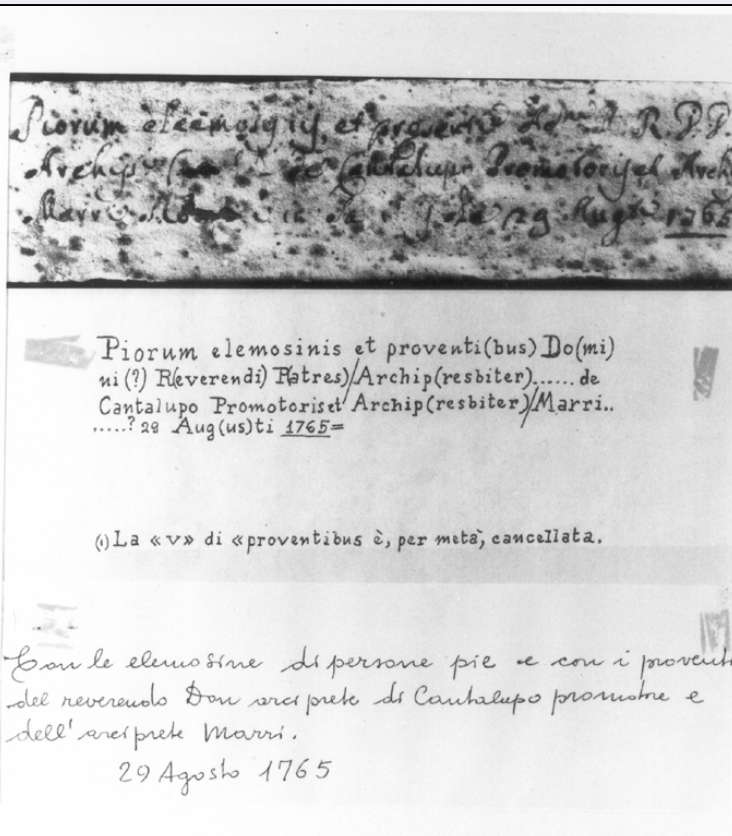 Piorum eleemosynis et proventi R. P. P.
Archip de Cantalupo Promotoris et Arch
Marri 29 Augti 1765
Piorum elemosinis et proventi(bus) Do(mi)
ni (?) R(everendi) P(atres)/Archip(resbiter)...... de
Cantalupo Promotoris et/Archip(resbiter)/Marri..
.....? 29 Aug(us)ti 1765=
(1) La «v» di «proventibus è, per metà, cancellata.
Con le elemosine di persone pie e con i provent
del reverendo Don arciprete di Cantalupo promotore e
dell'arciprete Marri.
29 Agosto 1765